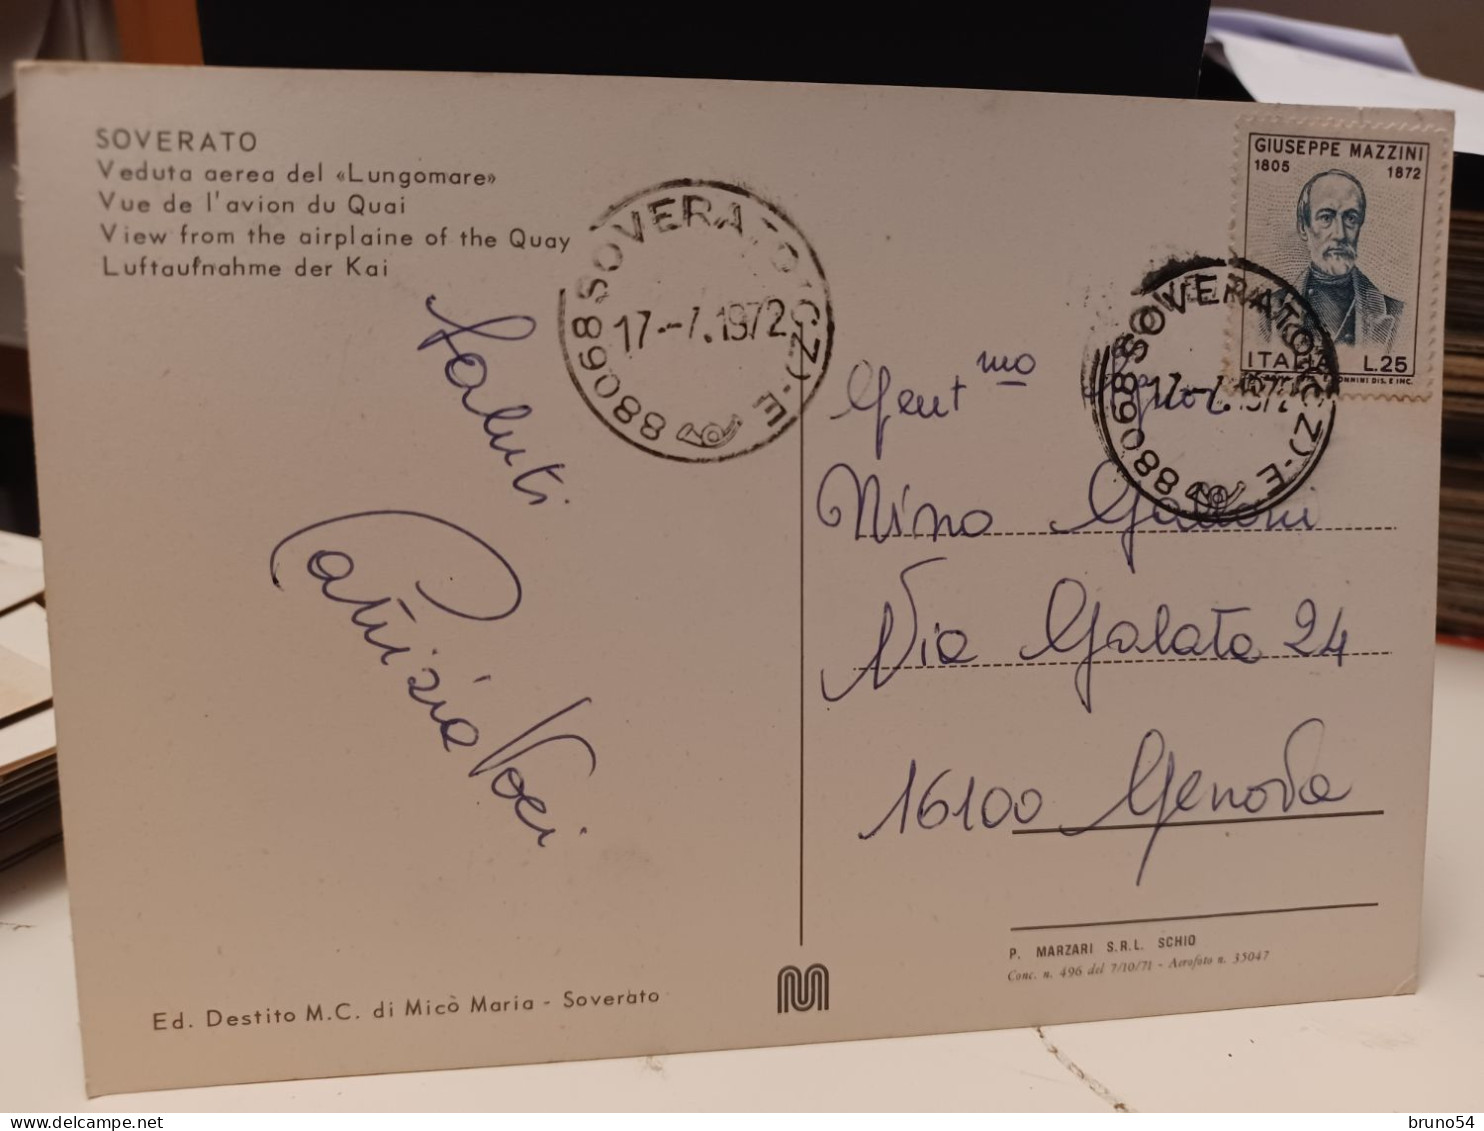 SOVERATO
Veduta aerea del «Lungomare»
Vue de l'avion du Quai
View from the airplaine of the Quay
Luftaufnahme der Kai
88068 SOVERATO (CZ) - E
17.-7.1972
GIUSEPPE MAZZINI
1805 1872
ITALIA L.25
88068 SOVERATO (CZ) - E
17.-7.1972
Saluti
Patrizia Voci
Gent mo
Nino Galloni
Via Galata 24
16100 Genova
P. MARZARI S.R.L. SCHIO
Conc. n. 496 del 7/10/71 - Aerofoto n. 35047
Ed. Destito M.C. di Micò Maria - Soverato
bruno54